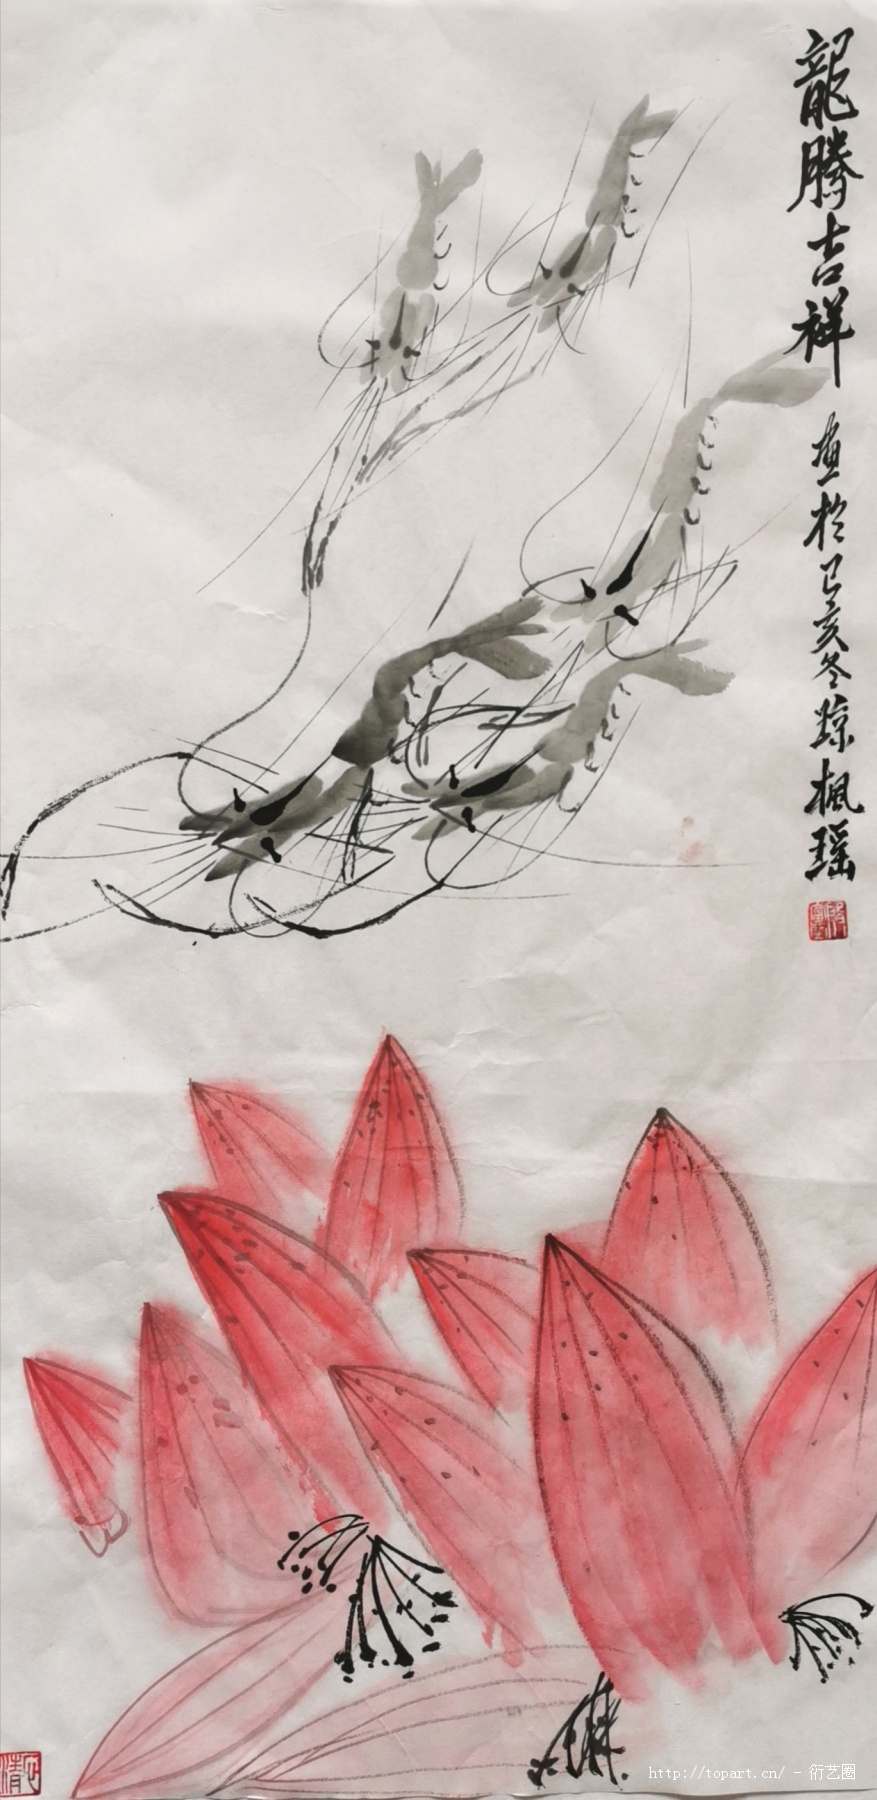 龍騰吉祥
画於己亥冬 琼楓瑶
清
http://topart.cn/ - 衍艺圈